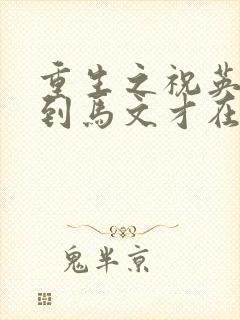 重生之祝英
到马文才在
鬼半京